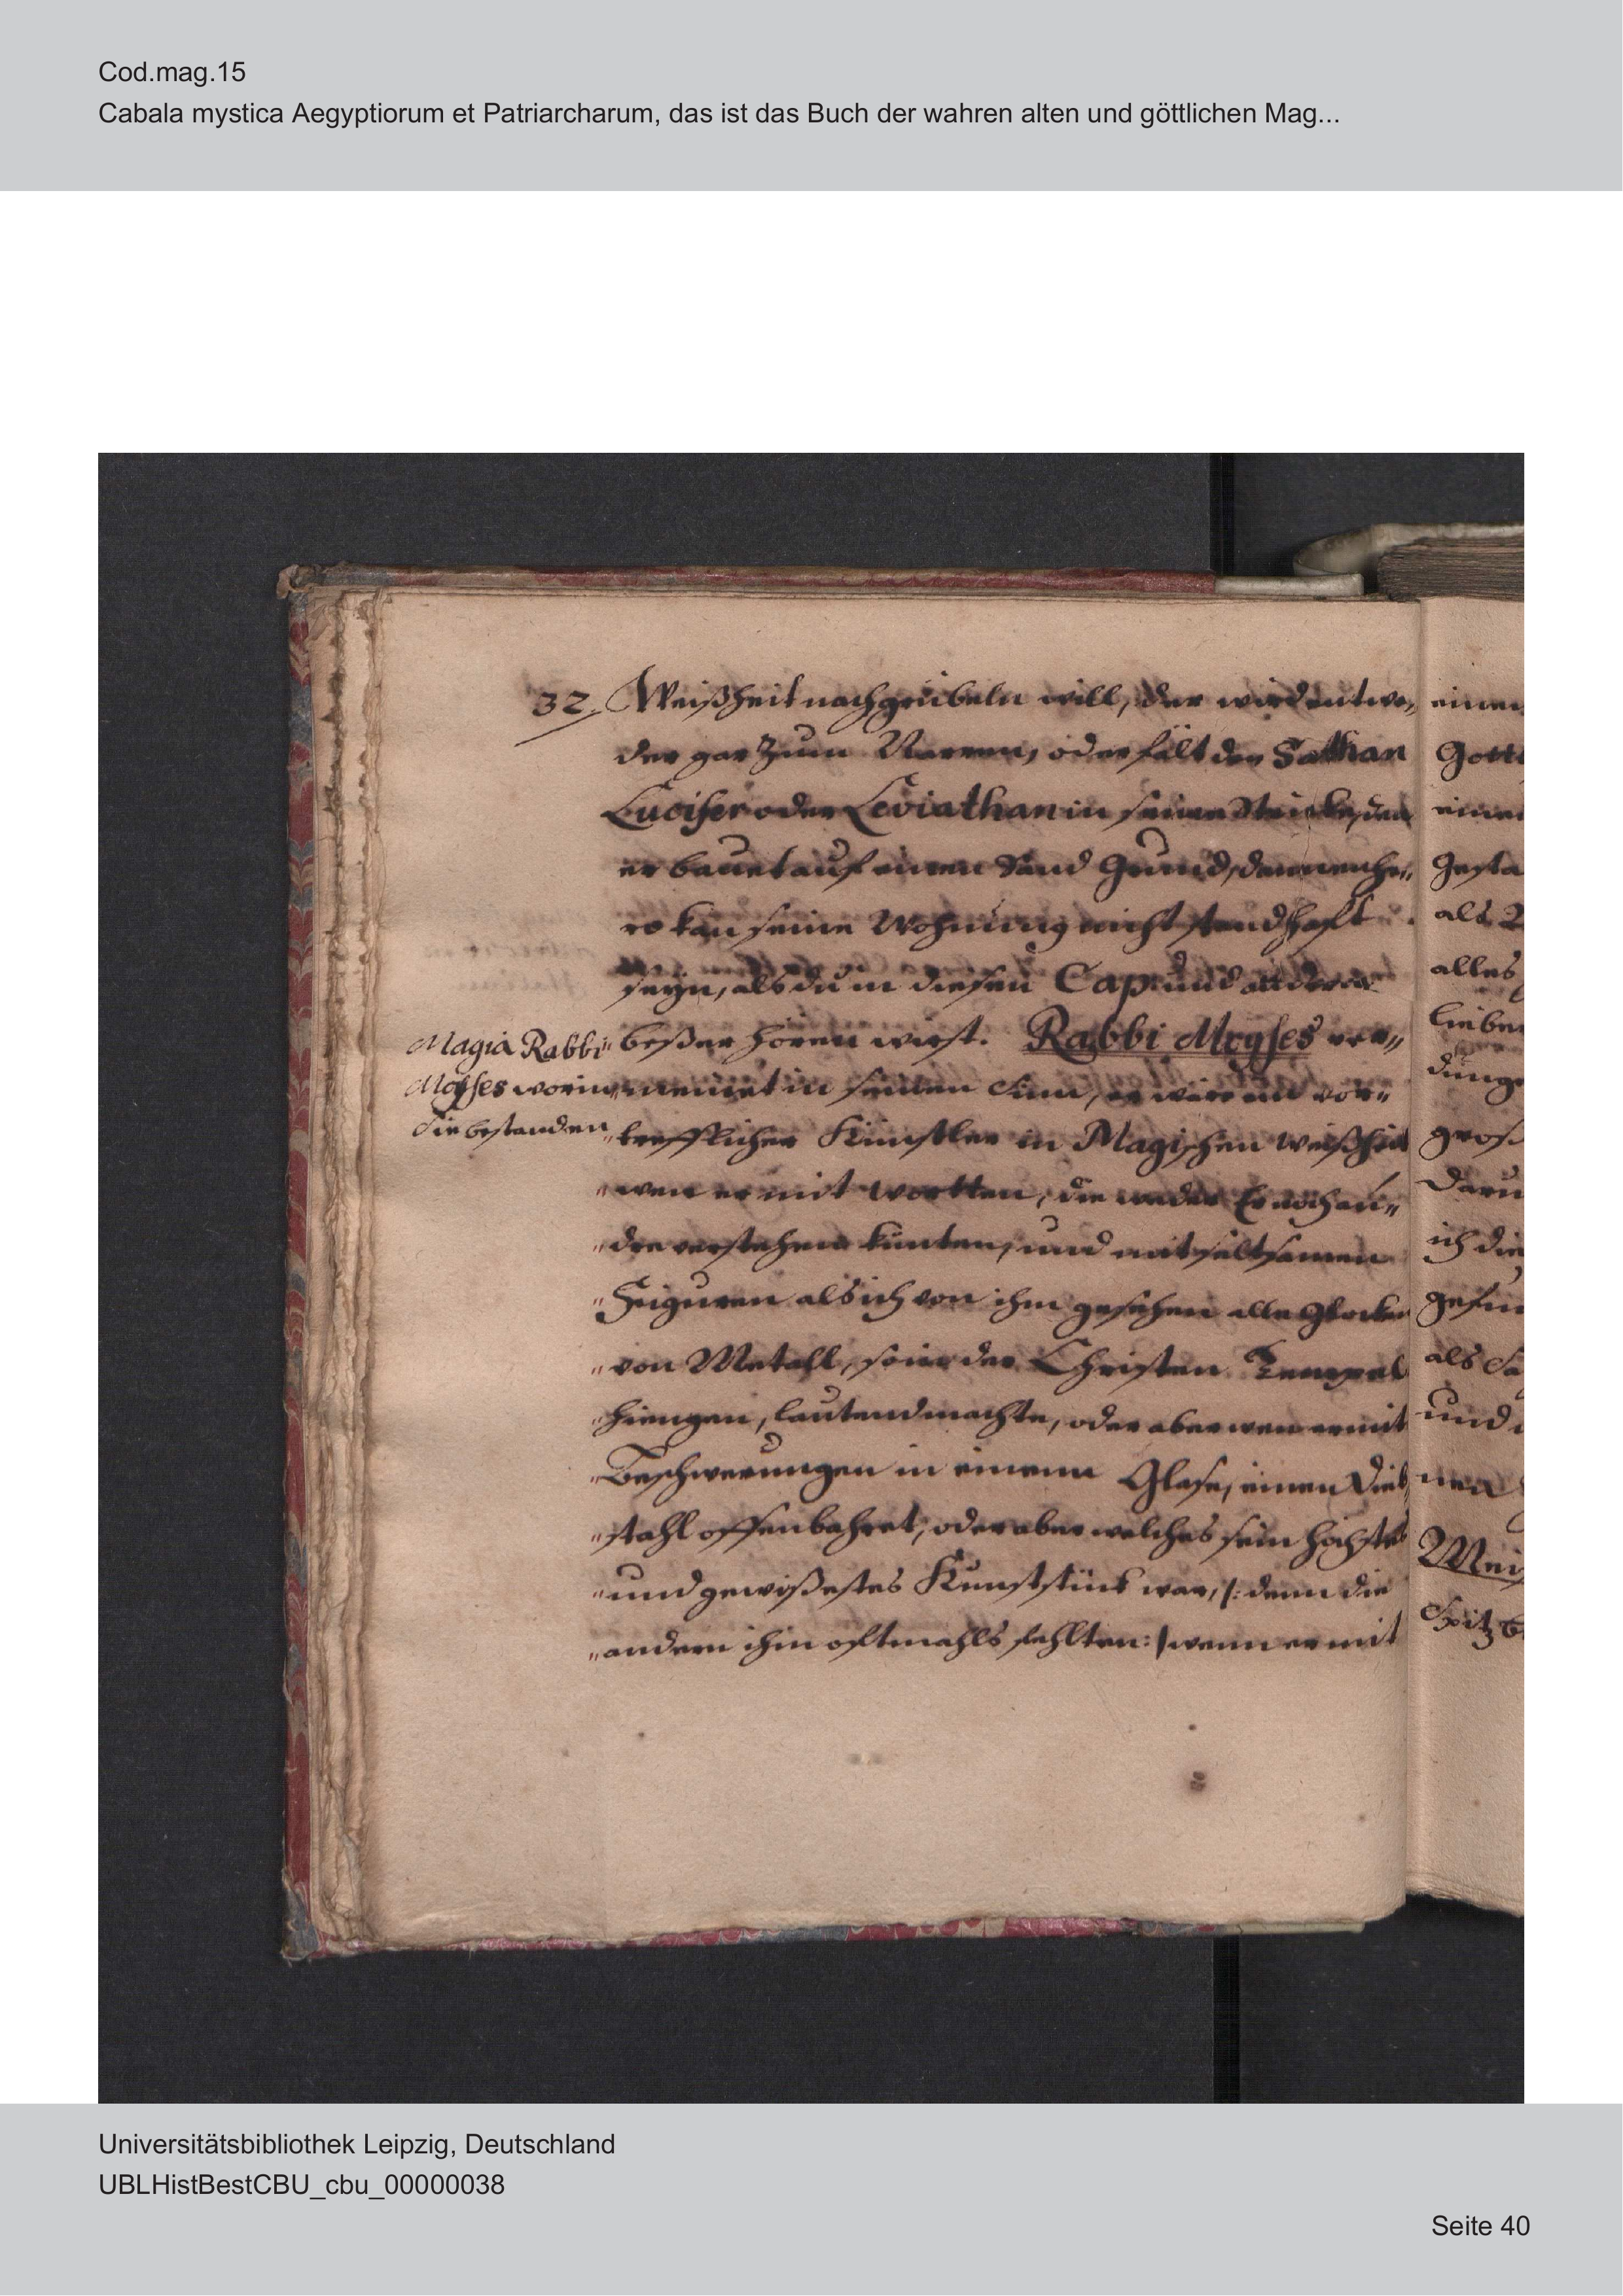 Cod.mag.15
Cabala mystica Aegyptiorum et Patriarcharum, das ist das Buch der wahren alten und göttlichen Mag...
32. Weißheit nachgrübeln will, der wird entwe„
der gar zum Narren, oder fält den Sathan
Lucifer oder Leviathan in seine Stricke, den
er bauet auf einen Sand Grund, dannenhe„
ro kan seine Wohnung nicht standhaft
seyn, als du in diesen Cap: und anderen
beßer hören wirst. Rabbi Moyses ver„
Magia Rabbi
Moyses worin
die bestanden
„meinet in seinen Sinn, er wäre ein vor„
„trefflicher Künstler in Magischen Weißheit
„wen er mit wortten, die weder Er noch an„
„dre verstehen kunten, und mit seltsamen
„Figuren als ich von ihm gesehen alle Glocken
„von Metall, so in der Christen Tempel
„hiengen, lautend machte, oder aber wen er mit
„Beschwerungen in einem Glase, einen Dieb
„stahl offenbahret, oder aber welches sein höchstes
„und gewißestes Kunststück war, /: denn die
„andern ihm oftmahls fehlten :/ wenn er mit
einen
Gott
einen
Gesta
als
alles
lieben
dung
gros
Daru
ich die
gefun
als Sa
und
nen
Spitzb
Universitätsbibliothek Leipzig, Deutschland
UBLHistBestCBU_cbu_00000038
Seite 40